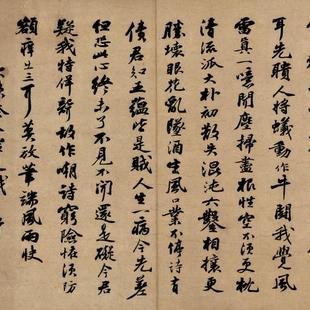 耳先聵人將蟻動作牛鬪我覺風
雷真一噫聞塵掃盡根性空不須更枕
清流派大朴初散失混沌六鑿相攘更
勝壞眼花亂墜酒生風口業不停詩有
債君知五蘊皆是賊人生一病今先差
但恐此心終未了不見不聞還是礙今君
疑我特佯聾故作嘲詩窮險怪須防
額癢出三耳莫放筆端風雨快